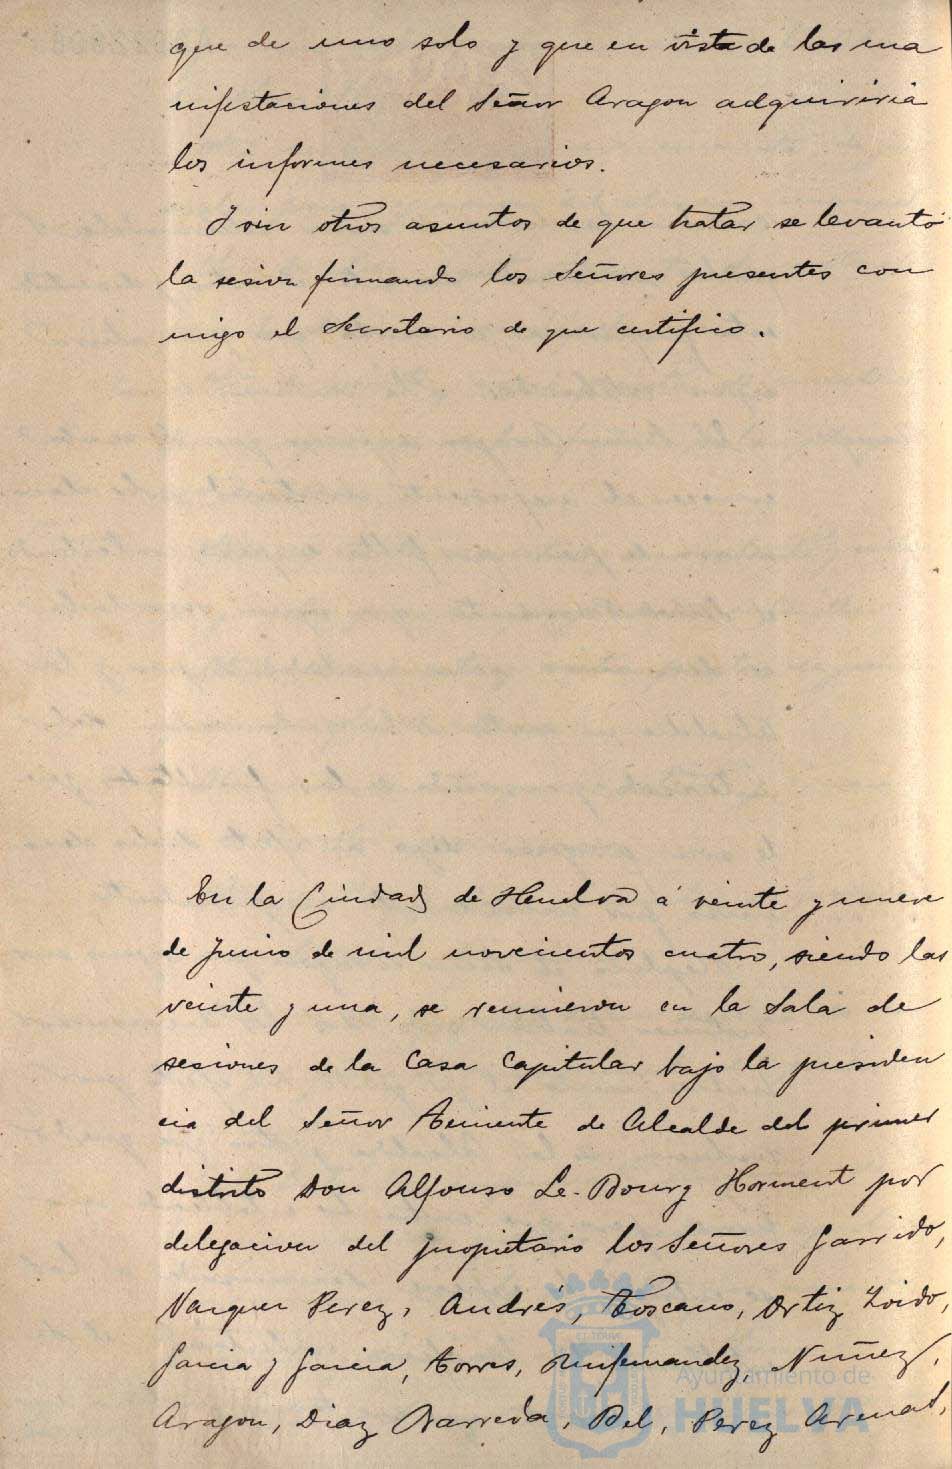 que de uno solo y que en vista de las ma
nifestaciones del Señor Aragon adquiriria
los informes necesarios.
Y sin otros asuntos de que tratar se levantó
la sesion firmando los Señores presentes con
migo el Secretario de que certifico.
En la Ciudad de Huelva á veinte y nueve
de Junio de mil novecientos cuatro, siendo las
veinte y una, se reunieron en la Sala de
sesiones de la Casa Capitular bajo la presiden
cia del Señor Teniente de Alcalde del primer
distrito Don Alfonso Le-Bourg Horment por
delegacion del propietario los Señores Garrido,
Vazquez Perez, Andrés, Toscano, Ortiz Zoido,
Garcia y Garcia, Torres, Ruifernandez, Nuñez,
Aragon, Diaz Barreda, Bel, Perez Arenas,
Ayuntamiento de
HUELVA